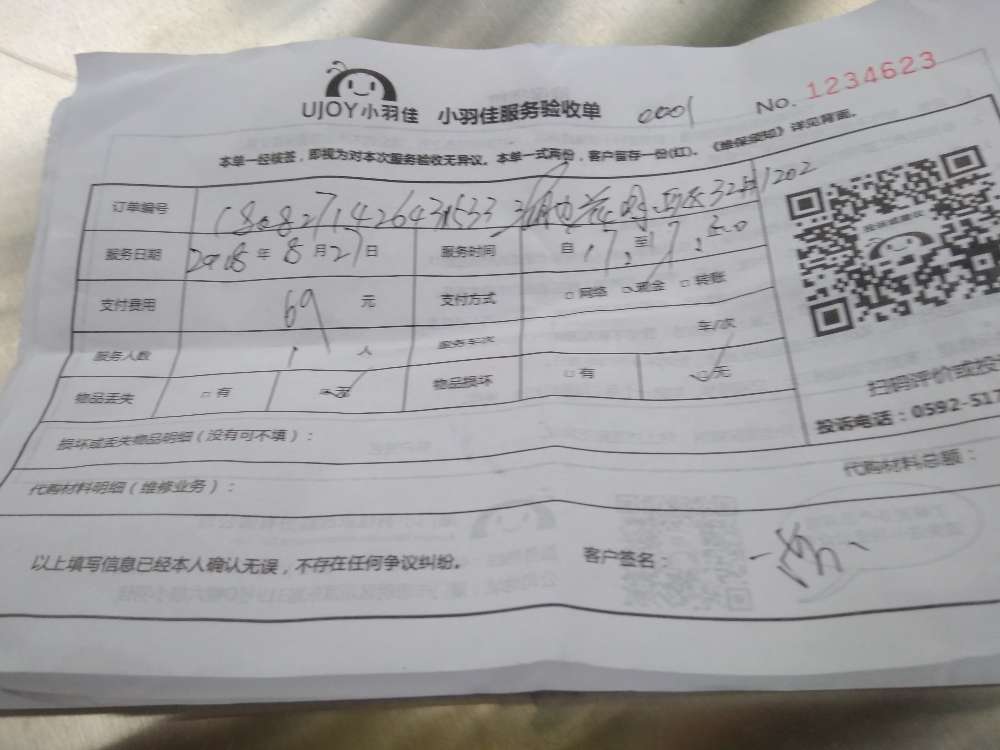 UJOY小羽佳 小羽佳服务验收单 0001 No. 1234623
本单一经核签，即视为对本次服务验收无异议。本单一式两份，客户留存一份(红)。《维保须知》详见背面。
订单编号
服务日期 2018 年 8 月 27 日 服务时间 自 17: 至 17:
支付费用 69 元 支付方式 □网络 □现金 □转账
服务人数 1 人 服务车次 车/次
物品丢失 □有 □无 物品损坏 □有 □无
扫码评价或投
投诉电话：0592-517
损坏或丢失物品明细（没有可不填）：
代购材料明细（维修业务）： 代购材料总额：
以上填写信息已经本人确认无误，不存在任何争议纠纷。 客户签名：